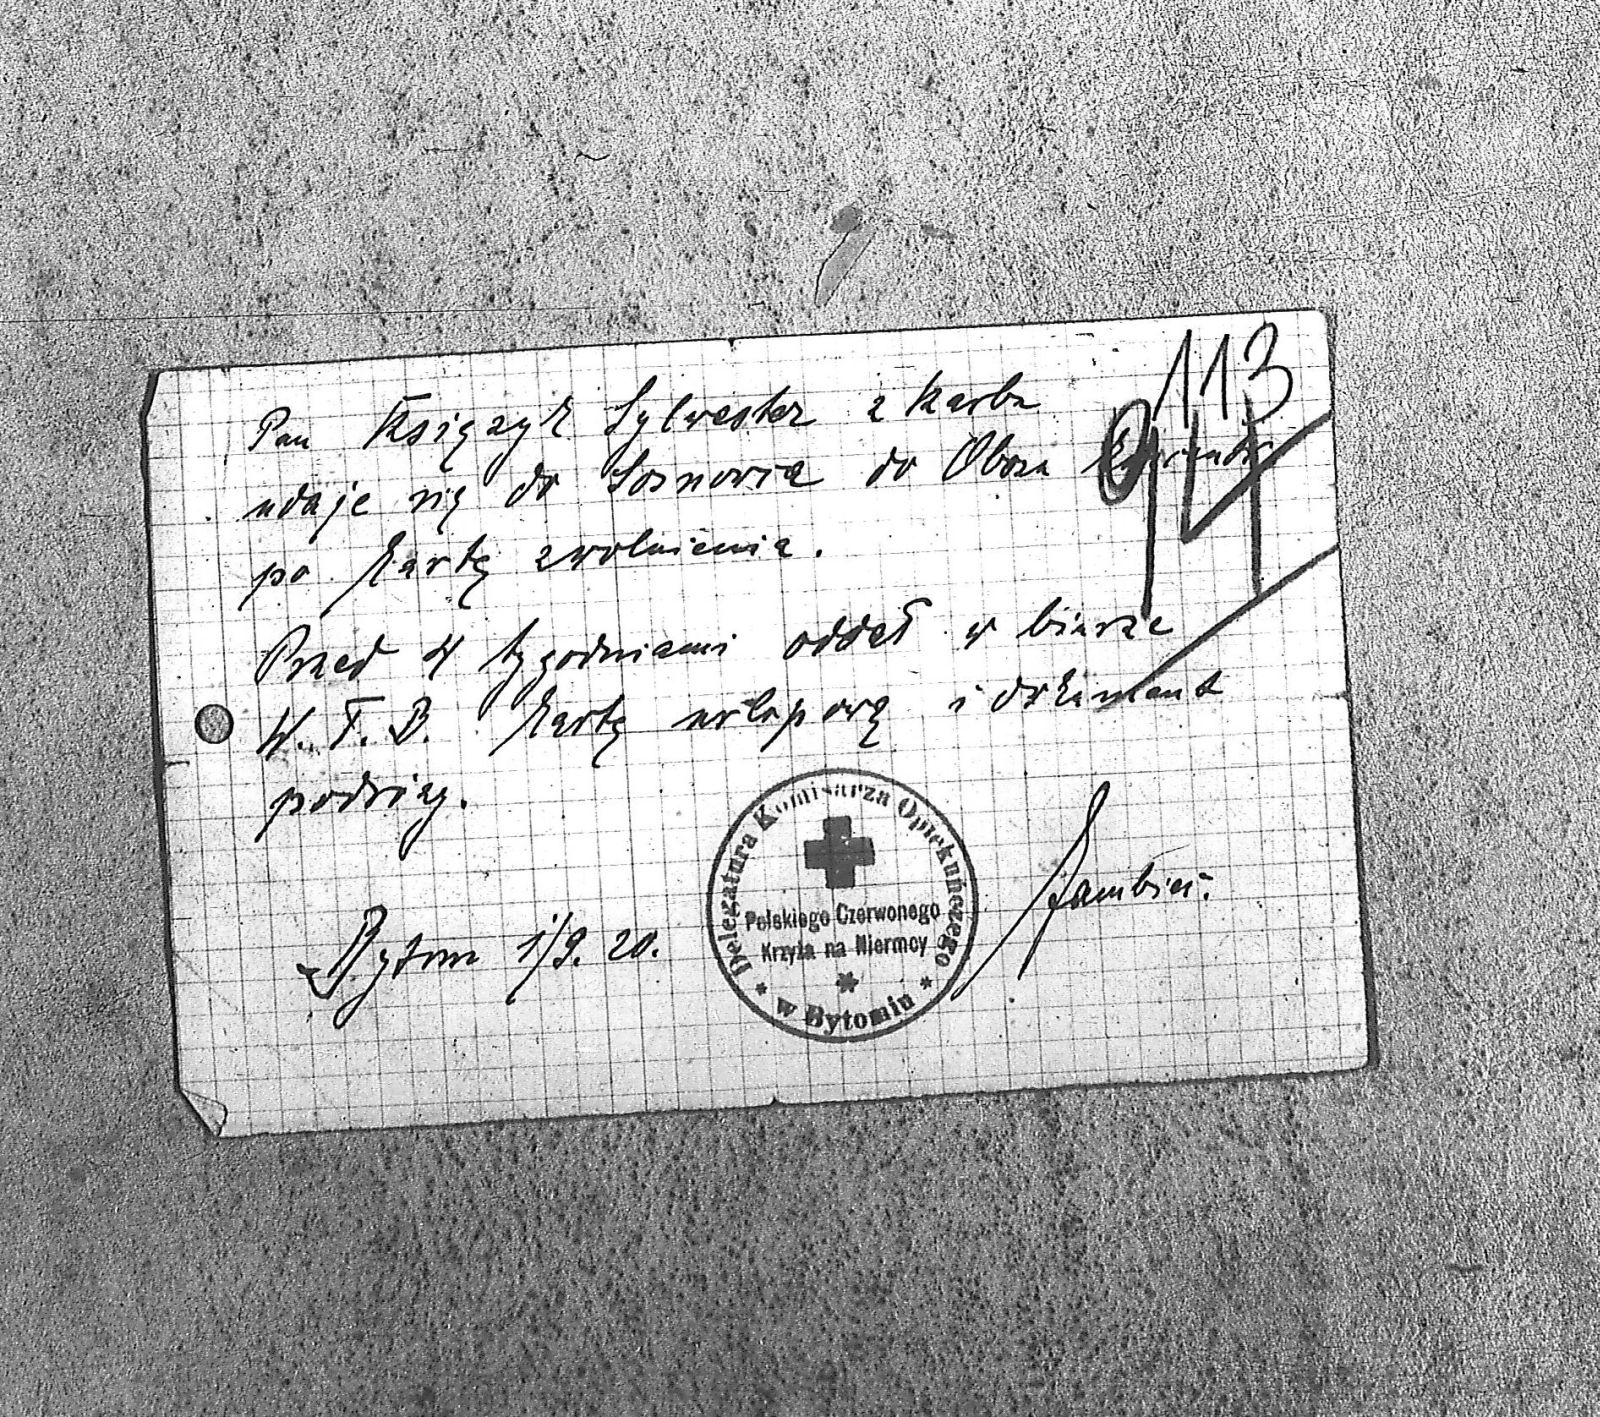 113
Pan Księżyk Sylwester z Karbu
udaje się do Sosnowic do Obozu
po kartę zwolnienia.
Przed 4 tygodniami oddał w biurze
W. T. B. kartę urlopową i dokument
podróży.
Bytom 1/9. 20.
Delegatura Komisarza Opiekuńczego
Polskiego Czerwonego
Krzyża na Niemcy
w Bytomiu